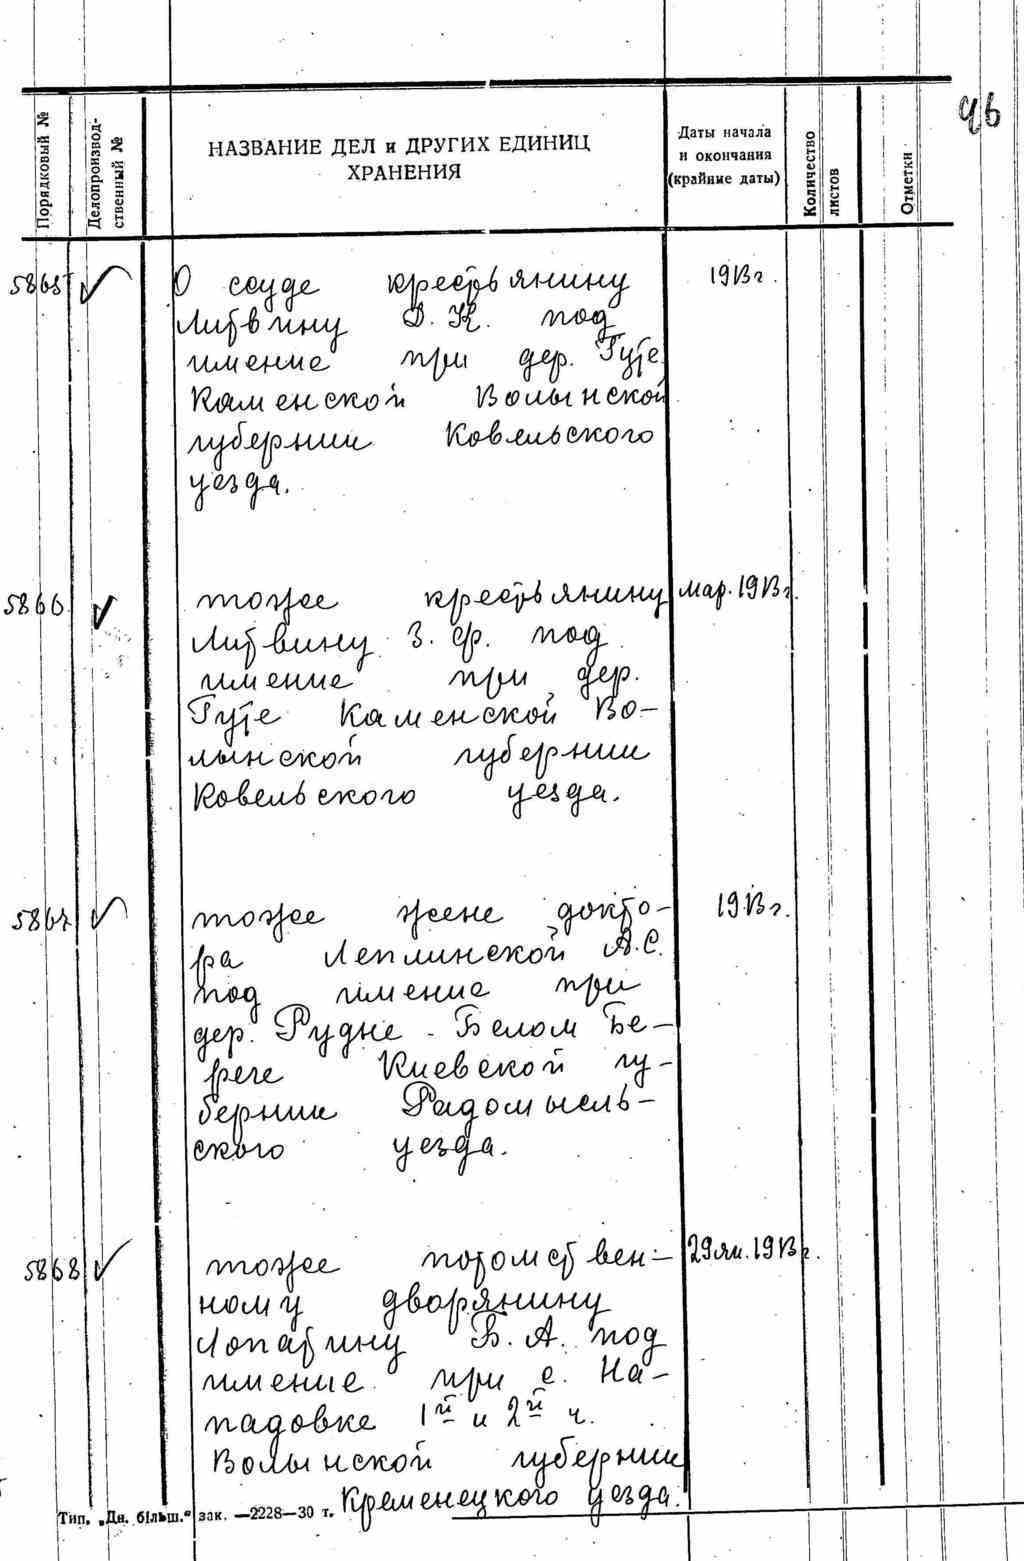 96
Порядковый №
Делопроизвод-
ственный №
НАЗВАНИЕ ДЕЛ и ДРУГИХ ЕДИНИЦ
ХРАНЕНИЯ
Даты начала
и окончания
(крайние даты)
Количество
листов
Отметки
5865 ✓ О ссуде крестьянину 1913 г.
Литвину Ф. К. под
имение при дер. Гуте
Каменской Волынской
губернии Ковельского
уезда.
5866 ✓ тоже крестьянину мар. 1913 г.
Литвину З. Ф. под
имение при дер.
Гуте Каменской Во-
лынской губернии
Ковельского уезда.
5867 ✓ тоже жене докто- 1913 г.
ра Леплинской А. С.
под имение при
дер. Рудне - Белом Бе-
реге Киевской гу-
бернии Радомысль-
ского уезда.
5868 ✓ тоже потомствен- 29 ян. 1913 г.
ному дворянину
Лопатину Б. А. под
имение при с. На-
падовке 1й и 2й ч.
Волынской губернии
Кременецкого уезда.
Тип. „Дн. більш.“ зак. —2228—30 т.